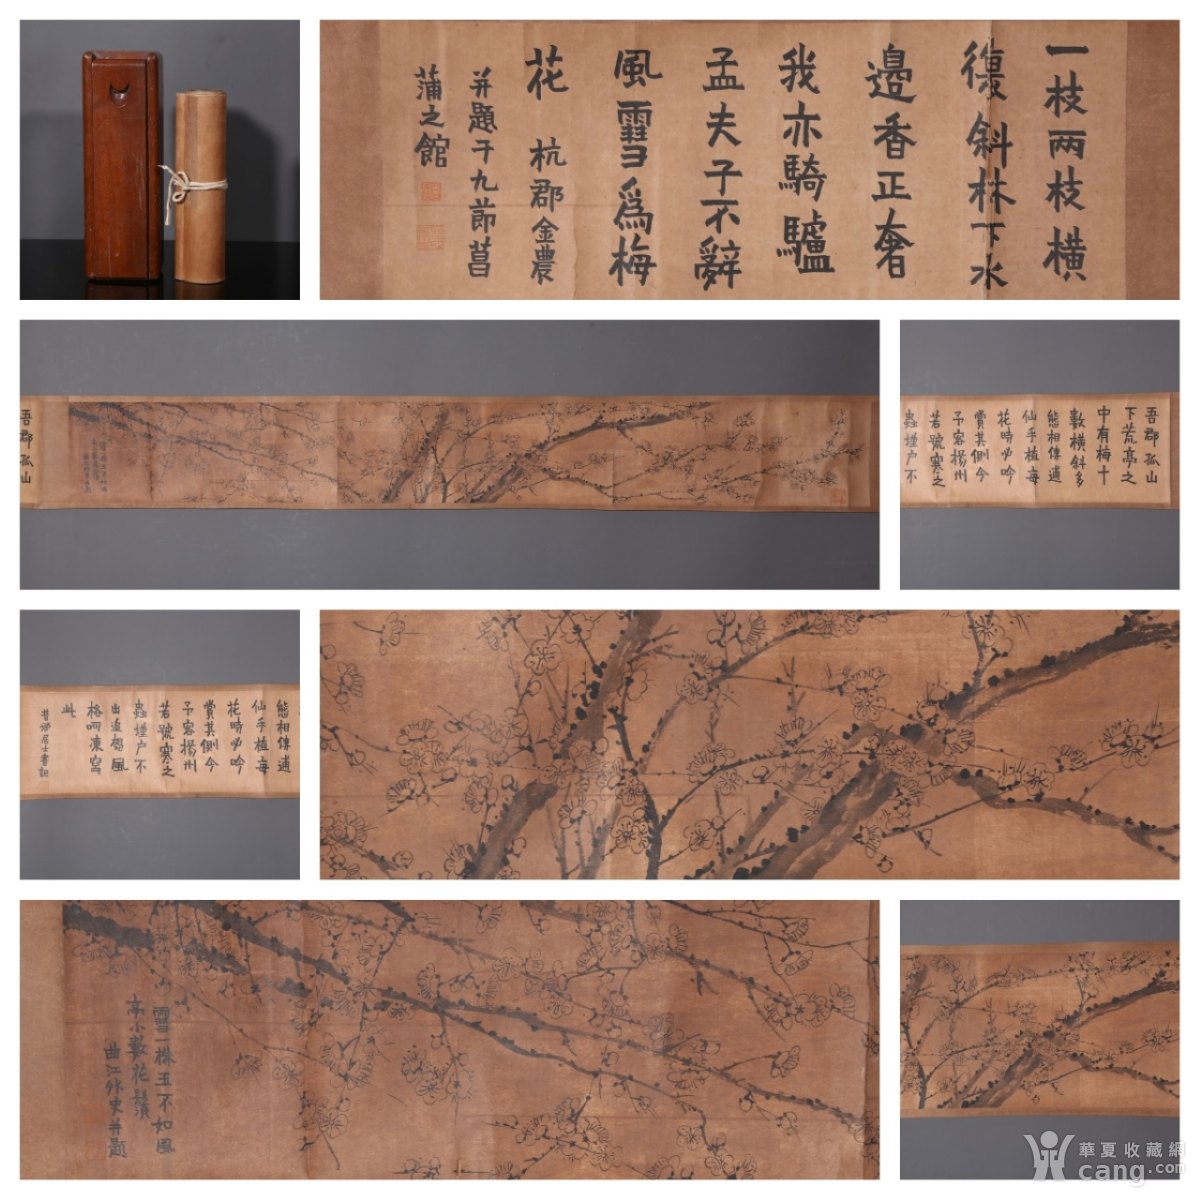 一枝兩枝橫
復斜林下水
邊香正奢
我亦騎驢
孟夫子不辭
風雪為梅
花 杭郡金農
并題于九節菖
蒲之館
吾郡孤山
吾郡孤山
下荒亭之
中有梅十
數橫斜多
態相傳逋
仙手植每
花時必吟
賞其側今
予客揚州
若號寒之
蟲墐户不
態相傳逋
仙手植每
花時必吟
賞其側今
予客揚州
若號寒之
蟲墐户不
出追想風
格呵凍寫
此
昔邪居士書記
雪一株五不如風
亭小數花鬚
曲江外史并題
華夏收藏網
cang.com